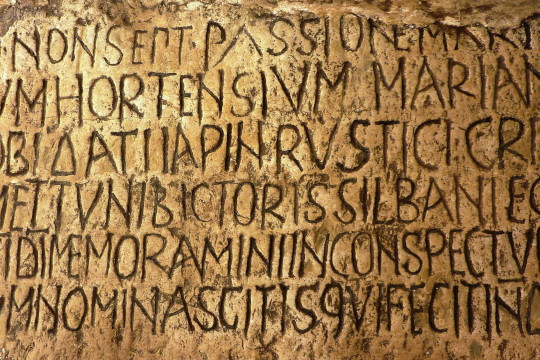 NONSEPT·PASSIONEMART
VMHORTENSIVMMARIAN
OBIDATIIAPINRVSTICICRI
METTVNIBICTORISSILBANIEG
IDIMEMORAMINIINCONSPECTV
VMNOMINASCITISQVIFECITIN